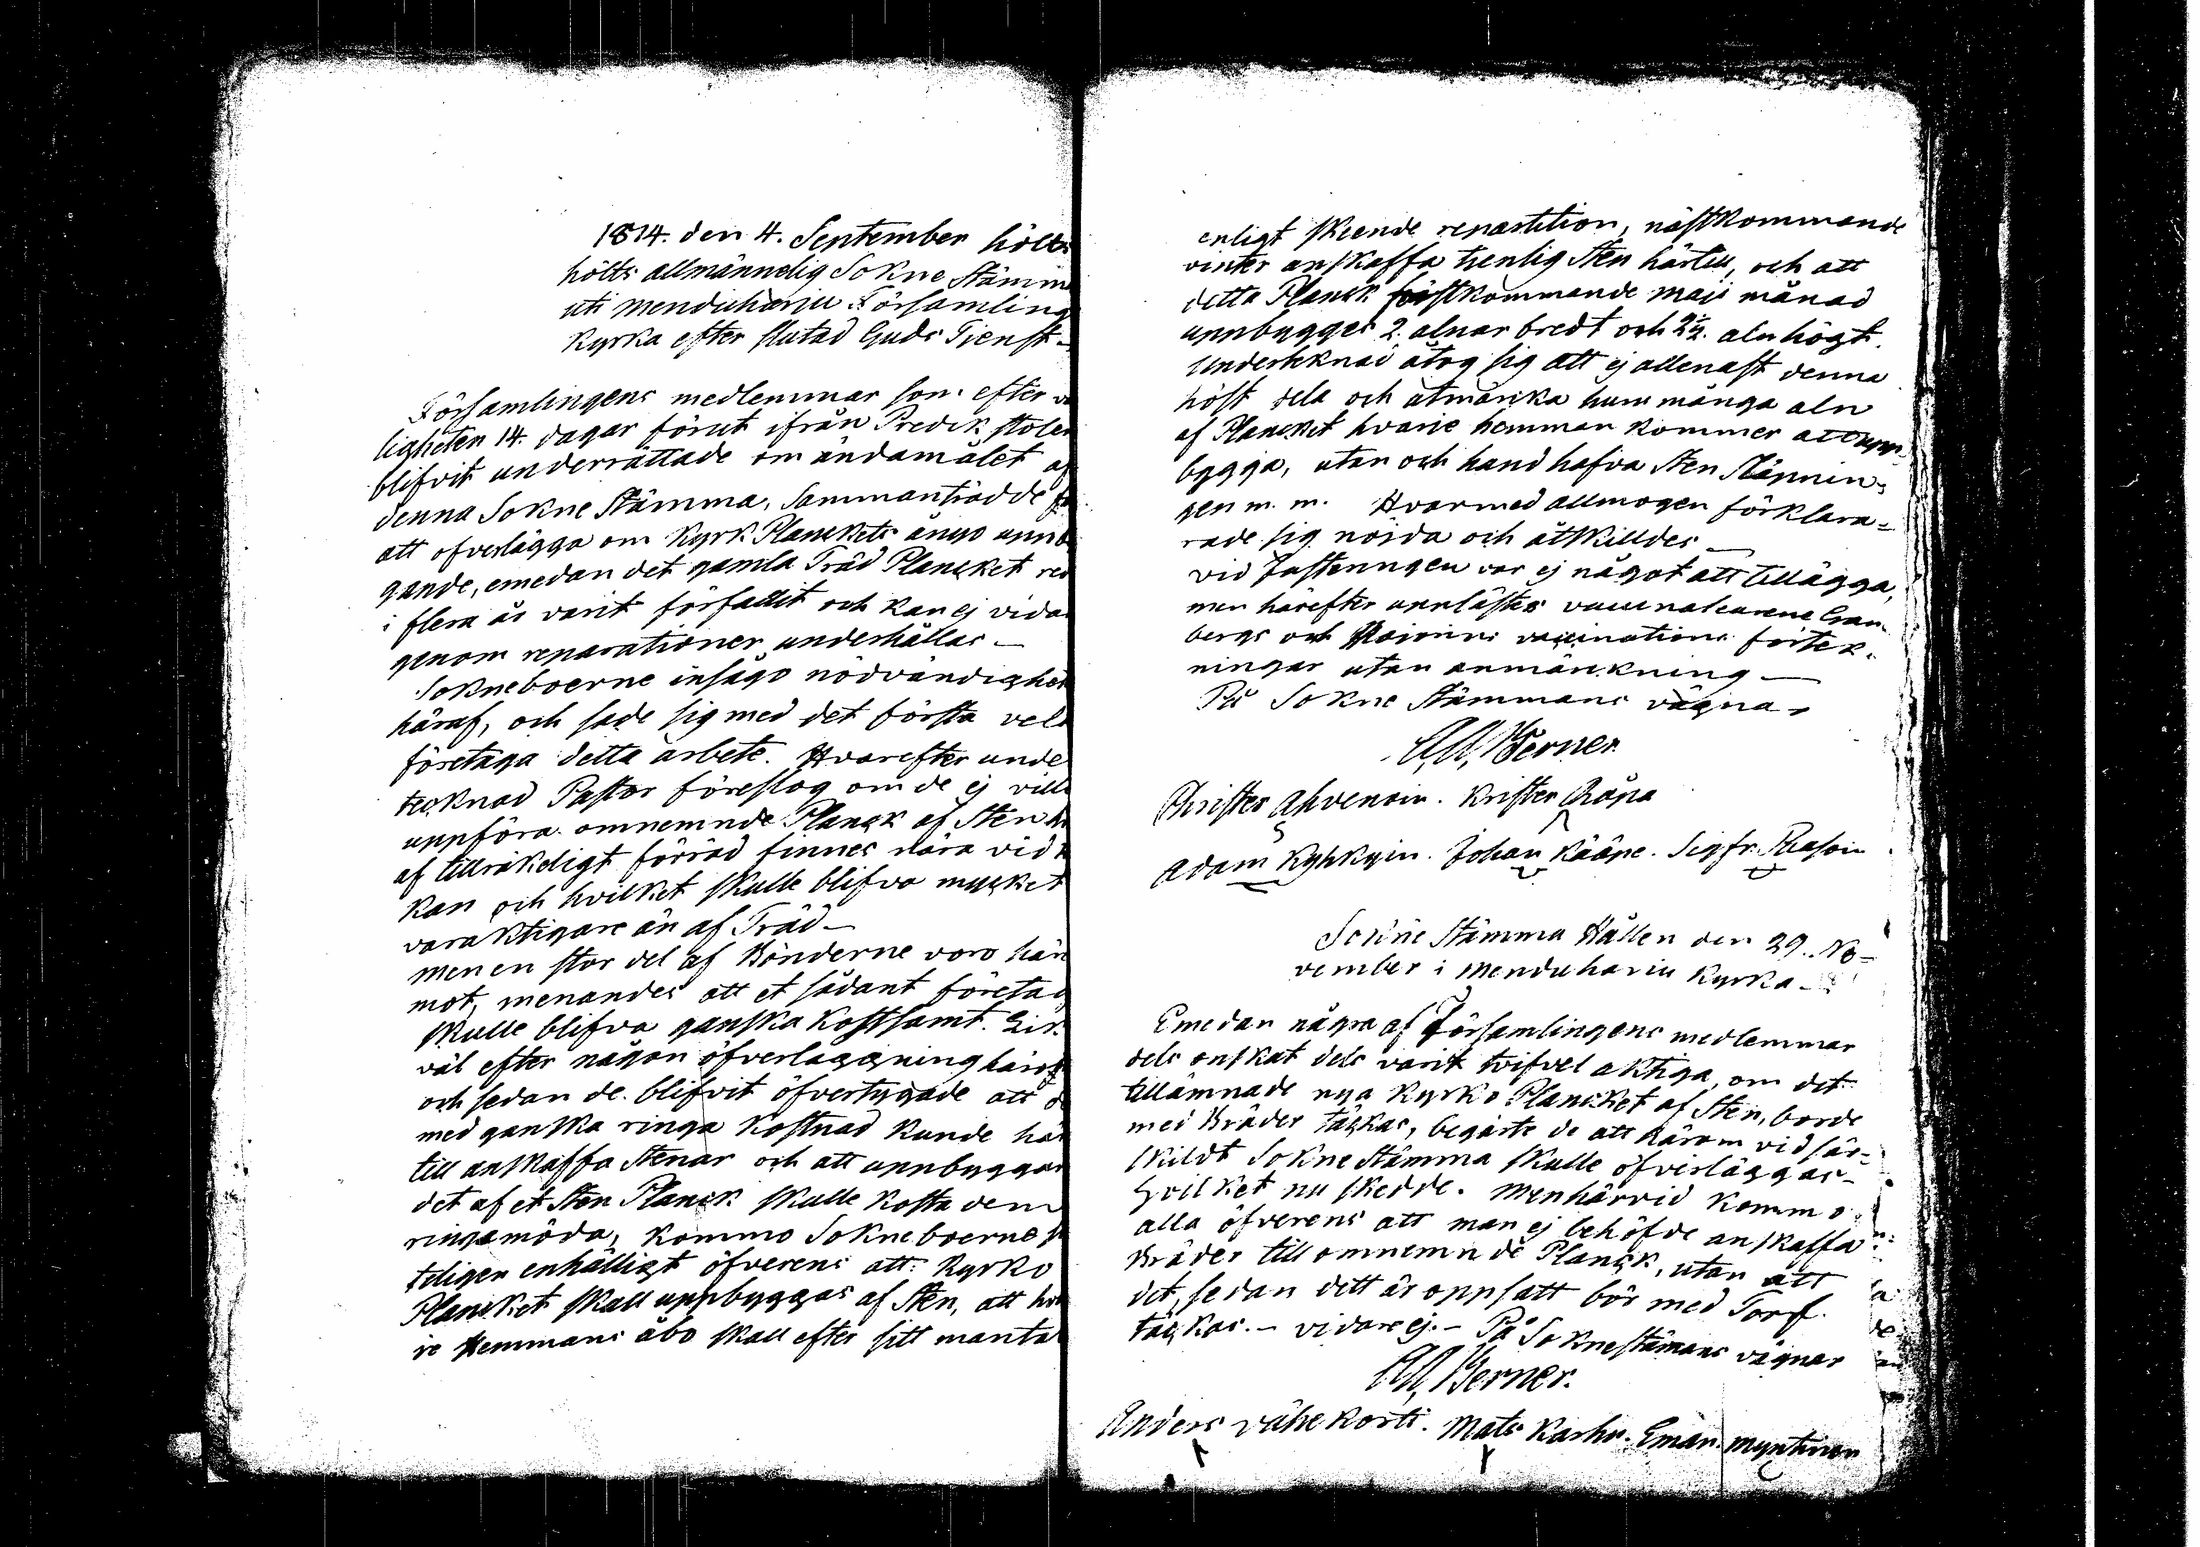 1814. den 4. September hölts
hölts allmännelig Sokne Stämm
uti Menduharju Församling
kyrka efter slutad Guds Tienst-
Församlingens medlemmar som efter
ligheten 14. dagar förut ifrån Predik stolen
blifvit underrättade om ändamålet af
denna Sokne Stämma, Sammanträdde
att ofverlägga om KyrkPlanckets ånyo uppb
gande, emedan det gamla Träd Plancket re
i flera år varit förfallit och kan ej vida
genom reparationer underhållas-
Sokneboerne insågo nödvändighet
häraf, och sade sig med det första vel
företaga detta arbete. Hvarefter unde
tecknad Pastor föreslog om de ej vill
uppföra omnemnde Planck af Sten
af tillräkeligt förråd finnes nära vid
kan och hvilket skulle blifva mycket
varaktigare än af Träd-
men en stor del af Bönderne voro här
mot, menandes att et sådant företag
skulle blifva ganska kostsamt. Lik
väl efter någon öfverläggning häröf
och sedan de blifvit öfvertygade att d
med ganska ringa kostnad kunde här
till anskaffa Stenar och att uppbyggan
det af et Sten Planck skulle kosta dem
ringa möda, kommo Sokneboerne
teligen enhälligt öfverens att Kyrko
Plancket skall uppbyggas af Sten, att hva
je Hemmans åbo skall efter sitt manta
enligt skeende repartition, nästkommande
vinter anskaffa tienlig Sten härtill, och att
detta Planck förstkommande Maji månad
uppbygges 2 alnar bredt och 2½. aln högt.
Undertecknad åtog sig att ej allenast denna
höst dela och utmärka huru många aln
af Plancket hvarje hemman kommer att upp-
bygga, utan och hand hafva Sten
gen m. m. Hvarmed allmogen förkla-
rade sig nöjda och åtskilldes-
vid justeringen var ej något att tillägga,
men härefter upplästes vaccinateurerne Gran
bergs och vaccinations förtek-
ningar utan anmärkning-
På Sokne Stämmans vägnar
Werner.
Christer Ahvenain. Krister Räpa
Adam Kyhkyin. Johan Kääpe. Sigfr.
Sokne Stämma Hållen den 29. No-
vember i Menduharju kyrka-
Emedan några af Församlingens medlemmar
dels önskat dels varit tvifvel aktiga, om det
tillämnade nya Kyrko Plancket af Sten, borde
med Bräder täckas, begärte de att härom vid sär-
skildt Sokne Stämma skulle öfverläggas-
hvilket nu skedde. Men härvid kommo
alla öfverens att man ej behöfde anskaffa
Bräder till omnemnde Planck, utan att
det, sedan dett är oppsatt bör med Torf.
täckas.- vidare ej.- På Soknestämans vägnar
Werner.
Anders Vähekorti. Mats Karhu. Eman. Myntinen